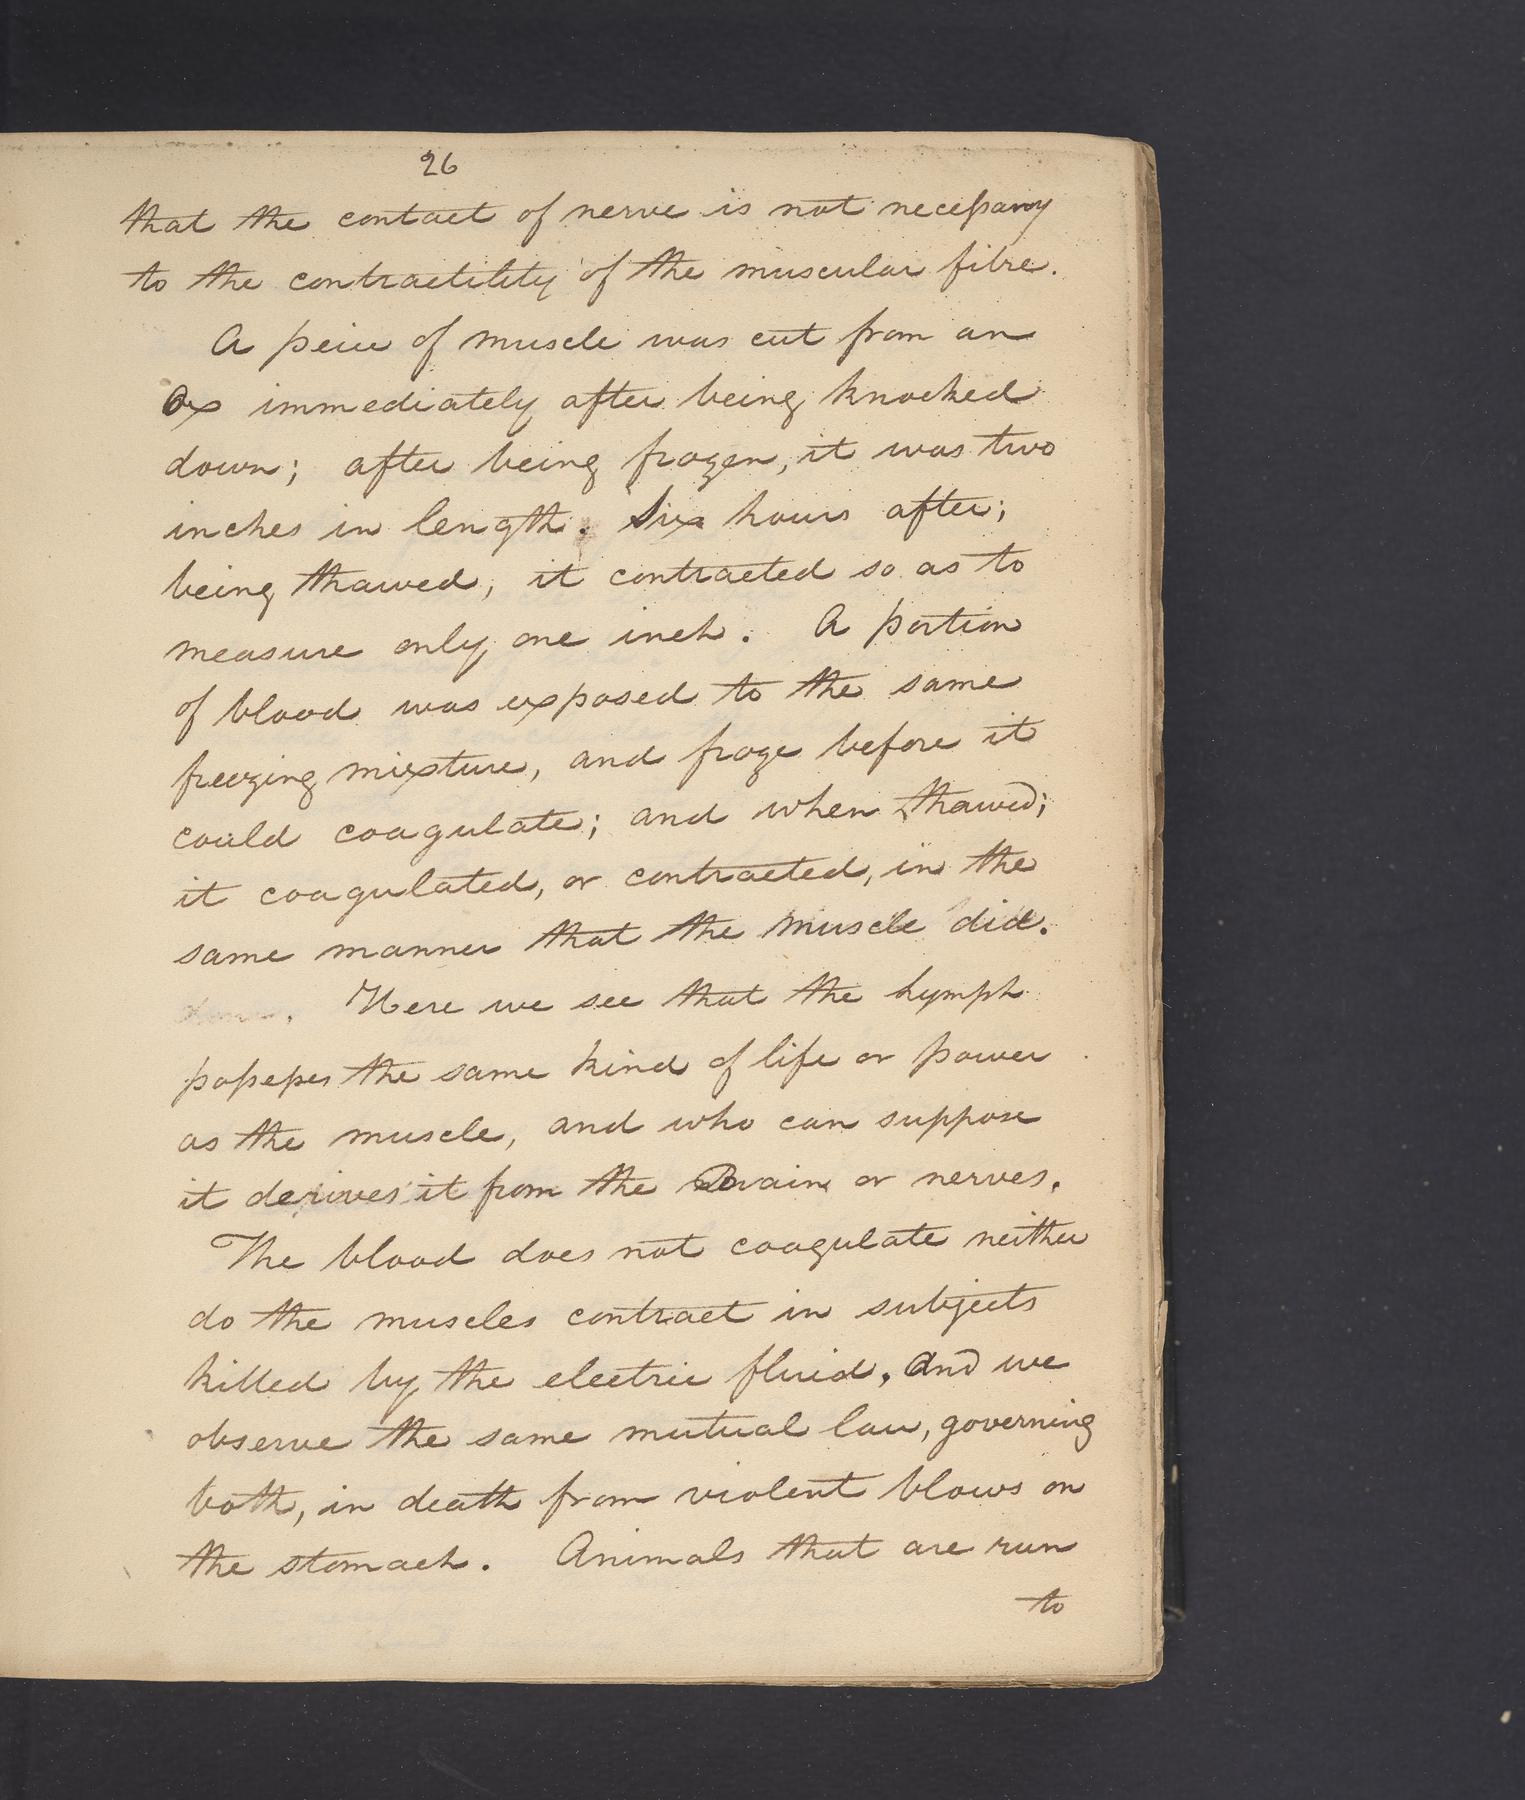 26
that the contact of nerve is not necessary
to the contractility of the muscular fibre.
A peice of muscle was cut from an
Ox immediately after being knocked
down; after being frozen, it was two
inches in length. Six hours after;
being thawed, it contracted so as to
measure only one inch. A portion
of blood was exposed to the same
freezing mixture, and froze before it
could coagulate; and when thawed;
it coagulated, or contracted, in the
same manner that the muscle did.
Here we see that the lymph
possesses the same kind of life or power
as the muscle, and who can suppose
it derives it from the Brain or nerves.
The blood does not coagulate neither
do the muscles contract in subjects
killed by the electric fluid, and we
observe the same mutual law, governing
both, in death from violent blows on
the stomach. Animals that are run
to